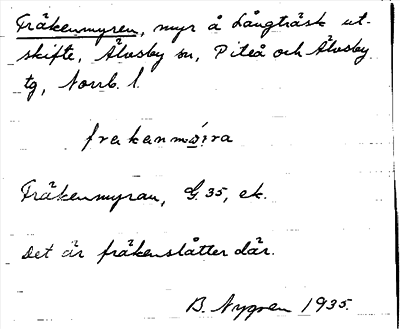 Fräkenmyren, myr å Långträsk ut-
skifte, Älvsby sn, Piteå och Älvsby
tg, Norrb. l.
Fräkenmyran, G. 35, ek.
Det är fräkenslåtter där.
B. Nygren 1935.